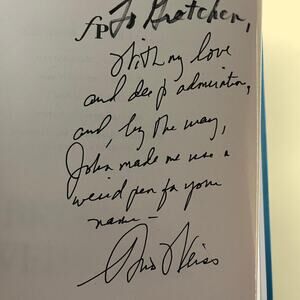 fP To Gretchen,
With my love
and deep admiration,
and, by the way,
John made me use a
weird pen for your
name –
Weiss